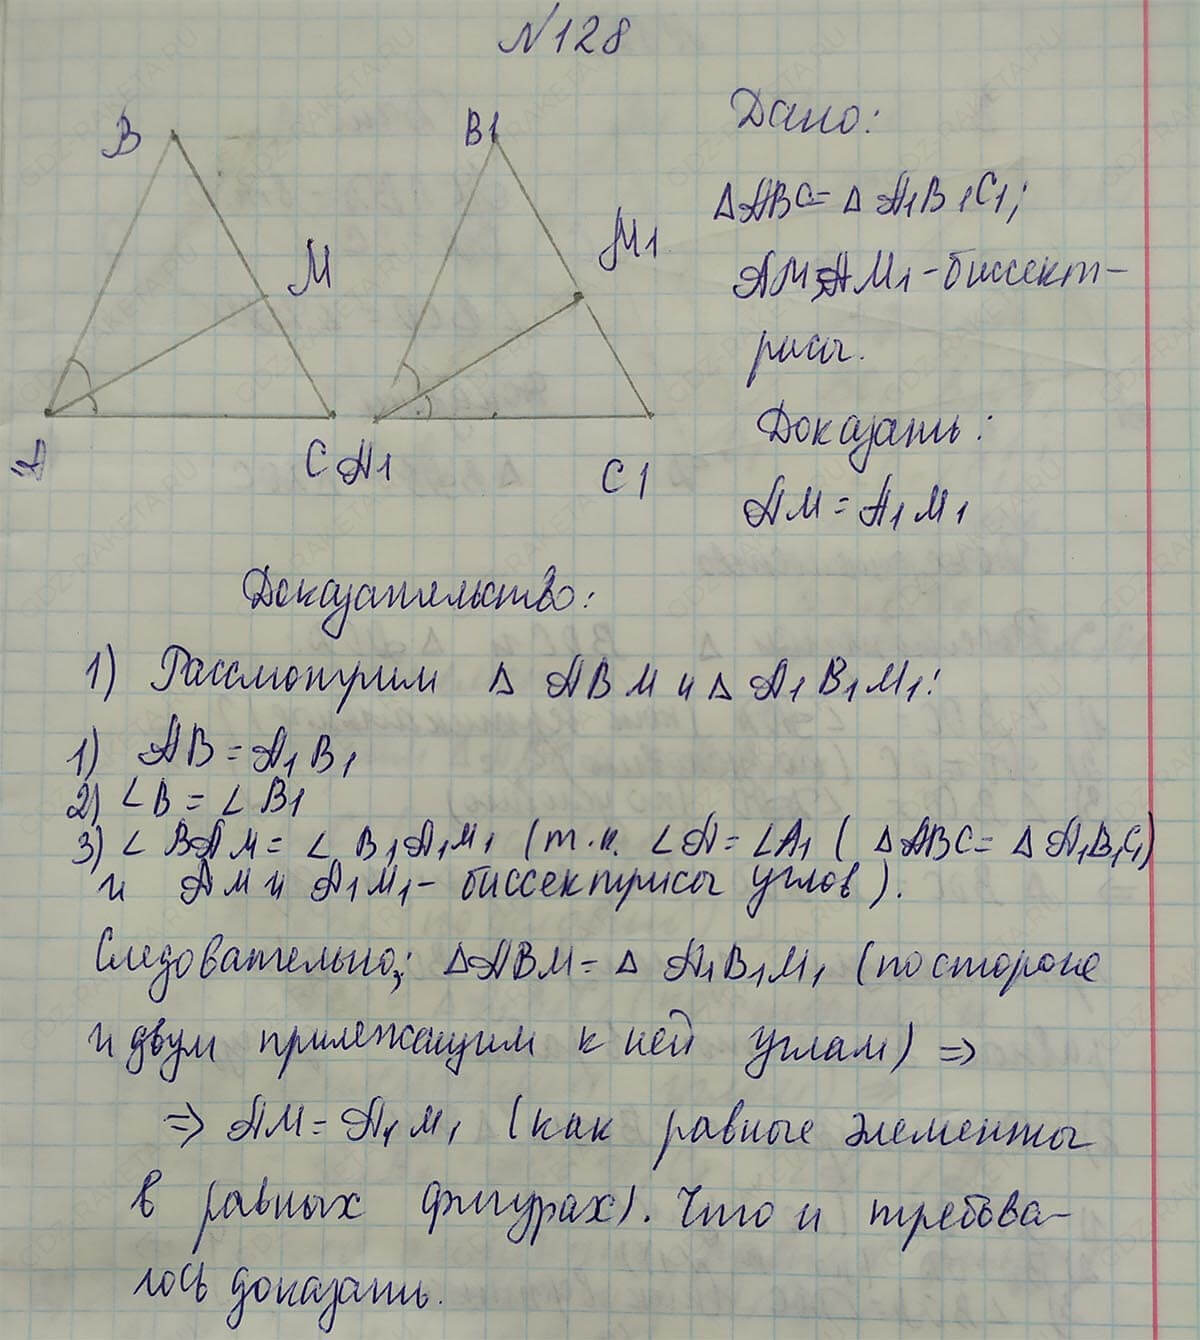 N128
B
B1
M
M1
A
C
A1
C1
Дано:
△ABC=△A1B1C1;
AM,AM1-биссект-
рисы.
Доказать:
AM=A1M1
Доказательство:
1) Рассмотрим △ ABM и △ A1B1M1:
1) AB=A1B1
2) ∠B=∠B1
3) ∠BAM=∠B1A1M1 (т.к. ∠A=∠A1 (△ABC=△A1B1C1)
и AM и A1M1-биссектрисы углов).
Следовательно,: △ABM=△ A1B1M1 (по стороне
и двум прилежащим к ней углам) =>
=> AM=A1M1 (как равные элементы
в равных фигурах). Что и требова-
лось доказать.